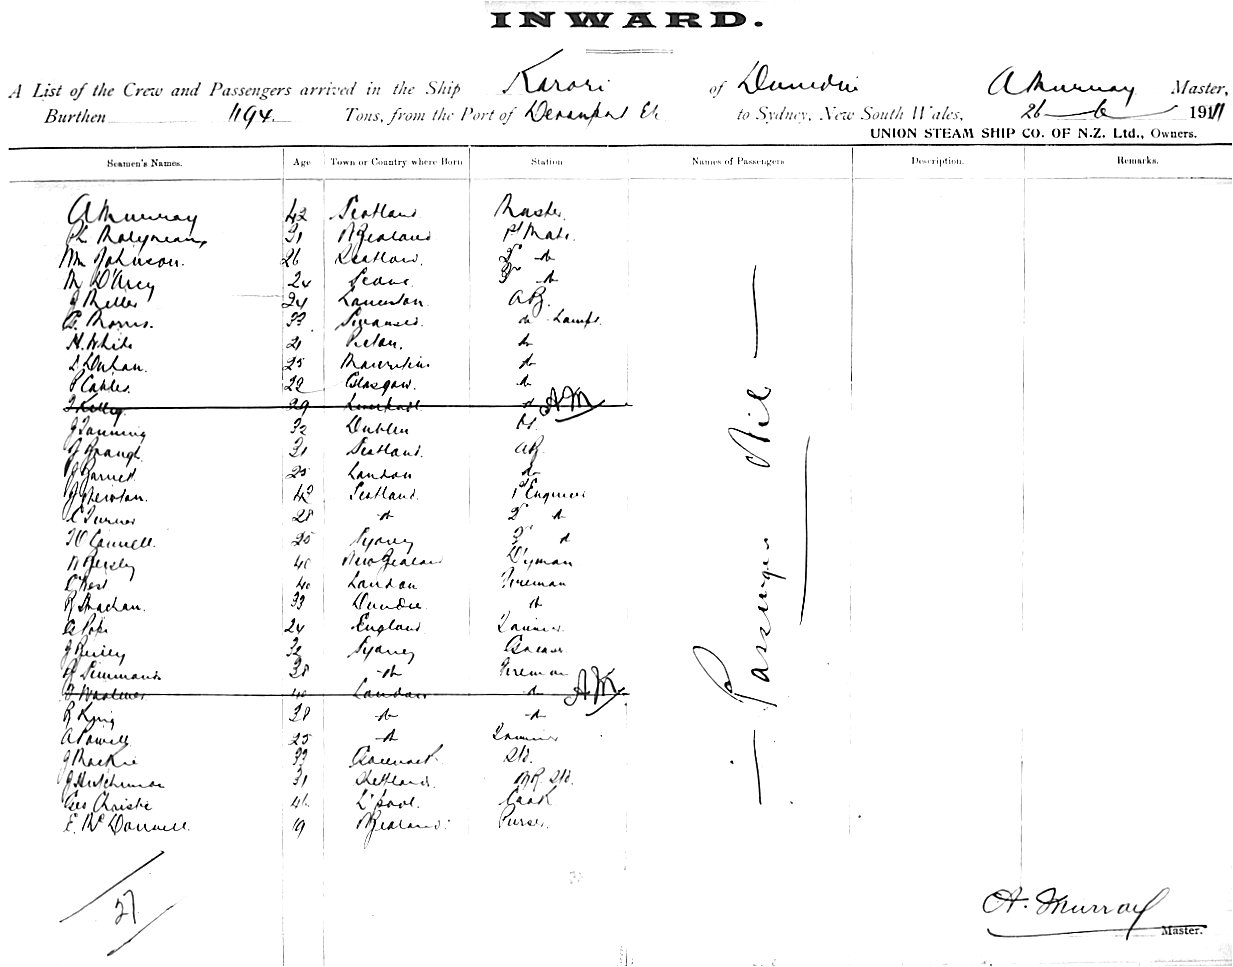 INWARD.
A List of the Crew and Passengers arrived in the Ship Karori of Dunedin A Murray Master,
Burthen 1194 Tons, from the Port of Devonport to Sydney, New South Wales, 26 6 1911
UNION STEAM SHIP CO. OF N.Z. Ltd., Owners.
Seamen's Names. Age Town or Country where Born Station Names of Passengers Description. Remarks.
A Murray 42 Scotland Master
31 N Zealand 1st Mate
Wm Johnson 26 Scotland 2nd do
M D'Arcy 24 3rd do
J Miller 24 AB
Morris 33 Swansea do Lamps
H. White 21 Picton do
25 Mauritius do
22 Glasgow do
J Kelly 29 Liverpool do AM
J Fanning 32 Dublin
31 Scotland AB
J Barnes 25 London do
J Newton 42 Scotland 1st Engineer
Turner 28 do 2nd do
25 Sydney 3rd do
40 New Zealand
West 40 London Fireman
R Strachan 33 Dundee do
A Pope 24 England Trimmer
J Reiley 32 Sydney Greaser
Simmons 38 do Fireman
40 London do AM
R King 38 do do
A Powell 25 do Trimmer
J Mackie 33 Greenock Std.
J Hutchinson 31 Shetland MR Std.
Geo Christie 46 L'pool Cook
E. McDonnell 19 N Zealand Purser
Passengers Nil
27
A. Murray
Master.